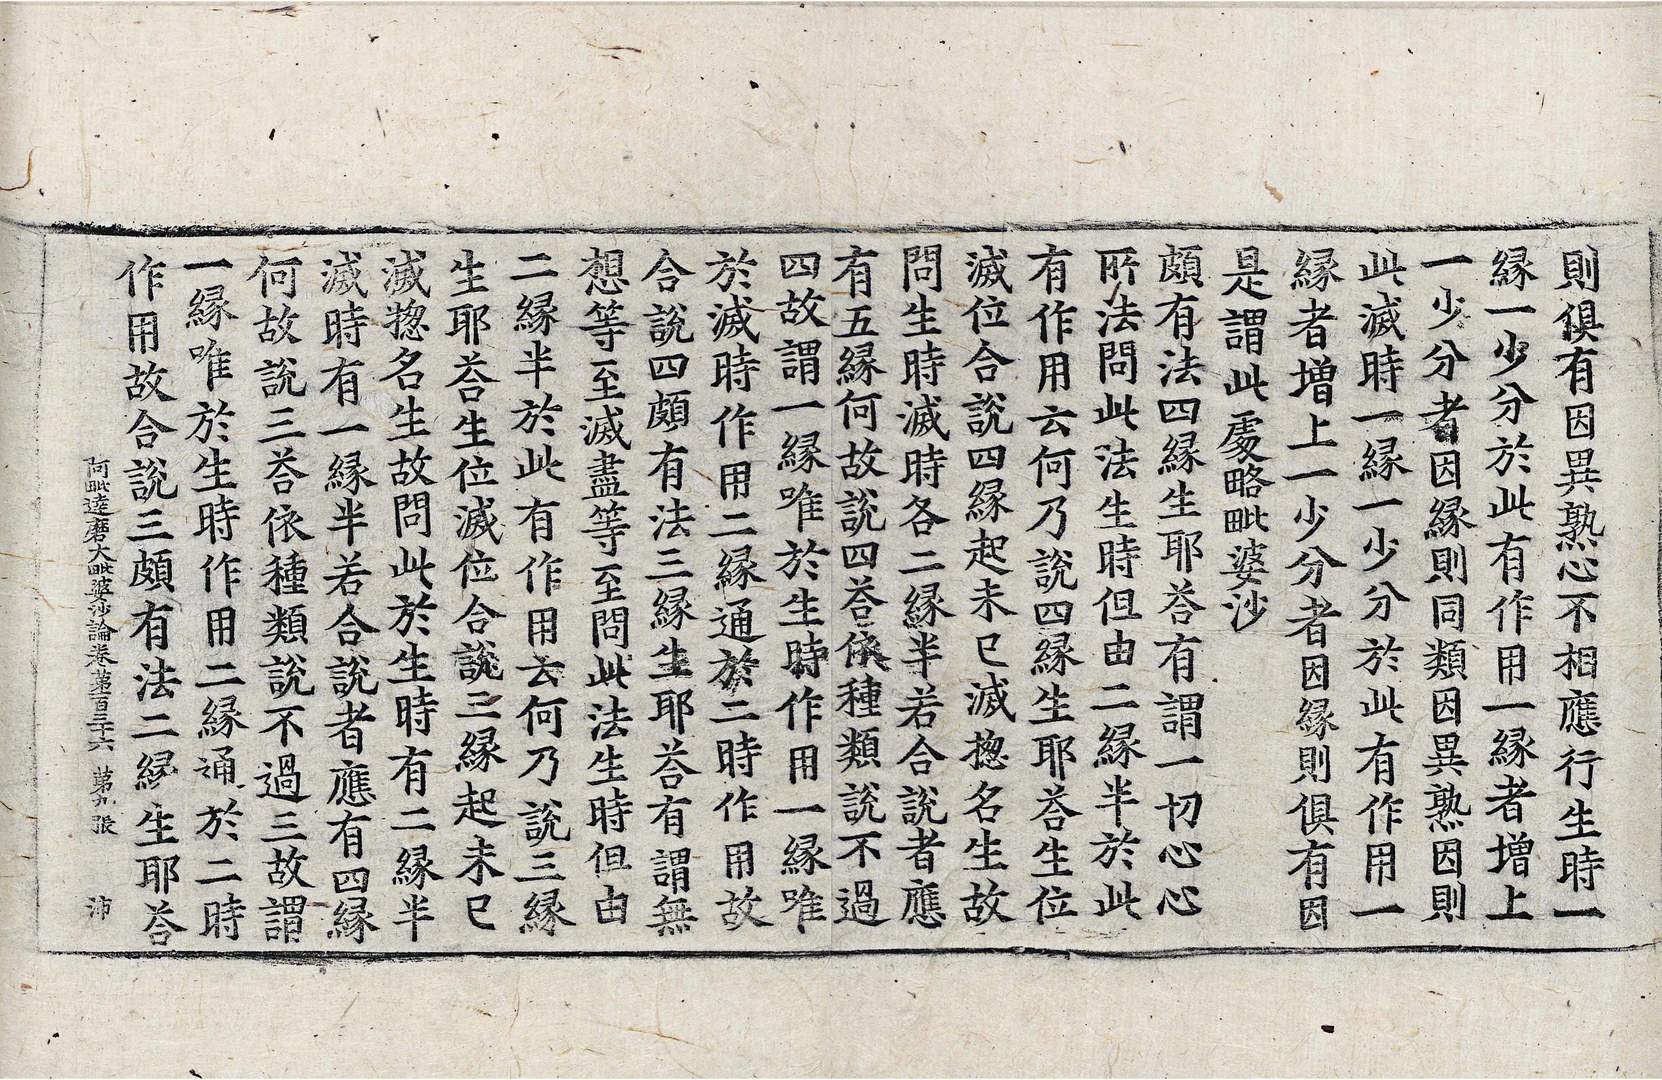 則俱有因異熟心不相應行生時一
緣一少分於此有作用一緣者增上
一少分者因緣則同類因異熟因則
此滅時一緣一少分於此有作用一
緣者增上一少分者因緣則俱有因
是謂此處略毗婆沙
頗有法四緣生耶荅有謂一切心心
所法問此法生時但由二緣半於此
有作用云何乃說四緣生耶荅生位
滅位合說四緣起未已滅揔名生故
問生時滅時各二緣半若合說者應
有五緣何故說四荅依種類說不過
四故謂一緣唯於生時作用一緣唯
於滅時作用二緣通於二時作用故
合說四頗有法三緣生耶荅有謂無
想等至滅盡等至問此法生時但由
二緣半於此有作用云何乃說三緣
生耶荅生位滅位合說三緣起未已
滅揔名生故問此於生時有二緣半
滅時有一緣半若合說者應有四緣
何故說三荅依種類說不過三故謂
一緣唯於生時作用二緣通於二時
作用故合說三頗有法二緣生耶荅
阿毗達磨大毗婆沙論卷第一百三十六 第九張 沛